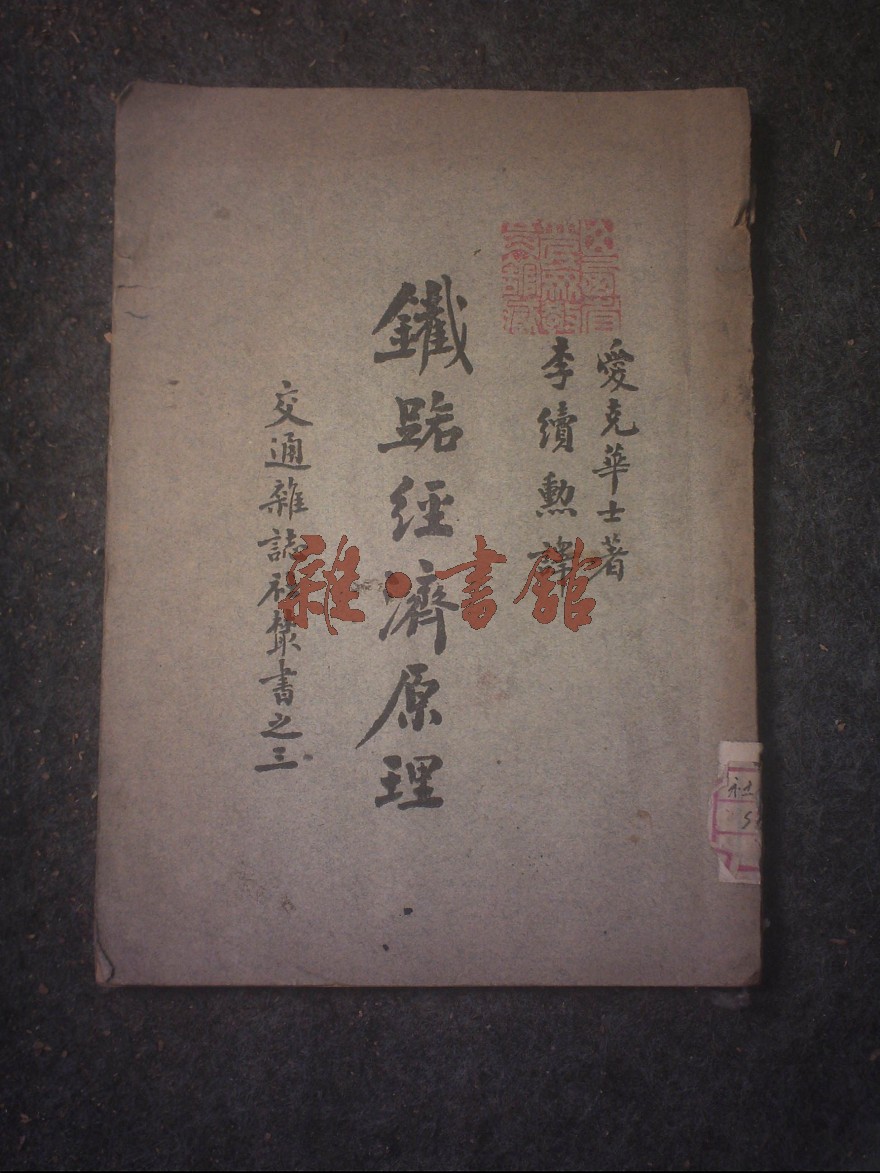 愛克華士著
李續勲譯
鐵路經濟原理
交通雜誌社叢書之三
雜·書館
社